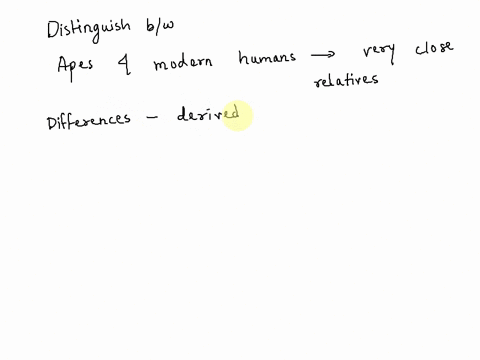 Distinguish b/w
Apes & modern humans → very close
relatives
Differences – derived